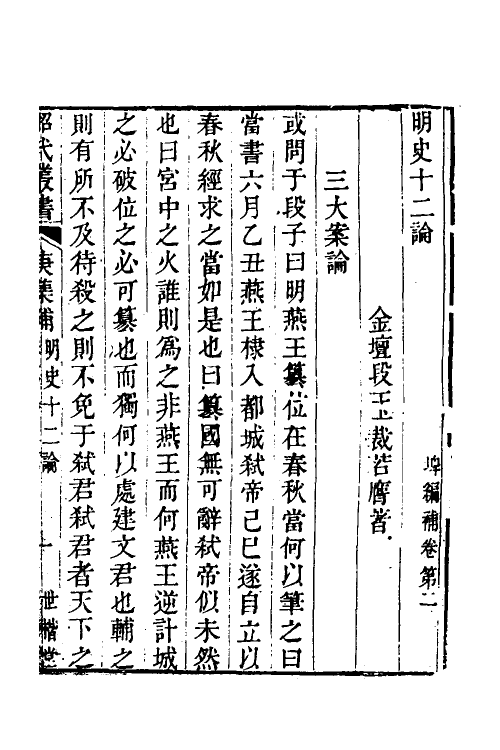 明史十二論
埤編補卷第二
金壇段玉裁若膺著
三大案論
或問于段子曰明燕王簒位在春秋當何以筆之曰
當書六月乙丑燕王棣入都城弑帝己巳遂自立以
春秋經求之當如是也曰簒國無可辭弑帝似未然
也曰宮中之火誰則爲之非燕王而何燕王逆計城
之必破位之必可簒也而獨何以處建文君也輔之
則有所不及待殺之則不免于弑君弑君者天下之
昭代叢書 庚集補 明史十二論 一 世楷堂